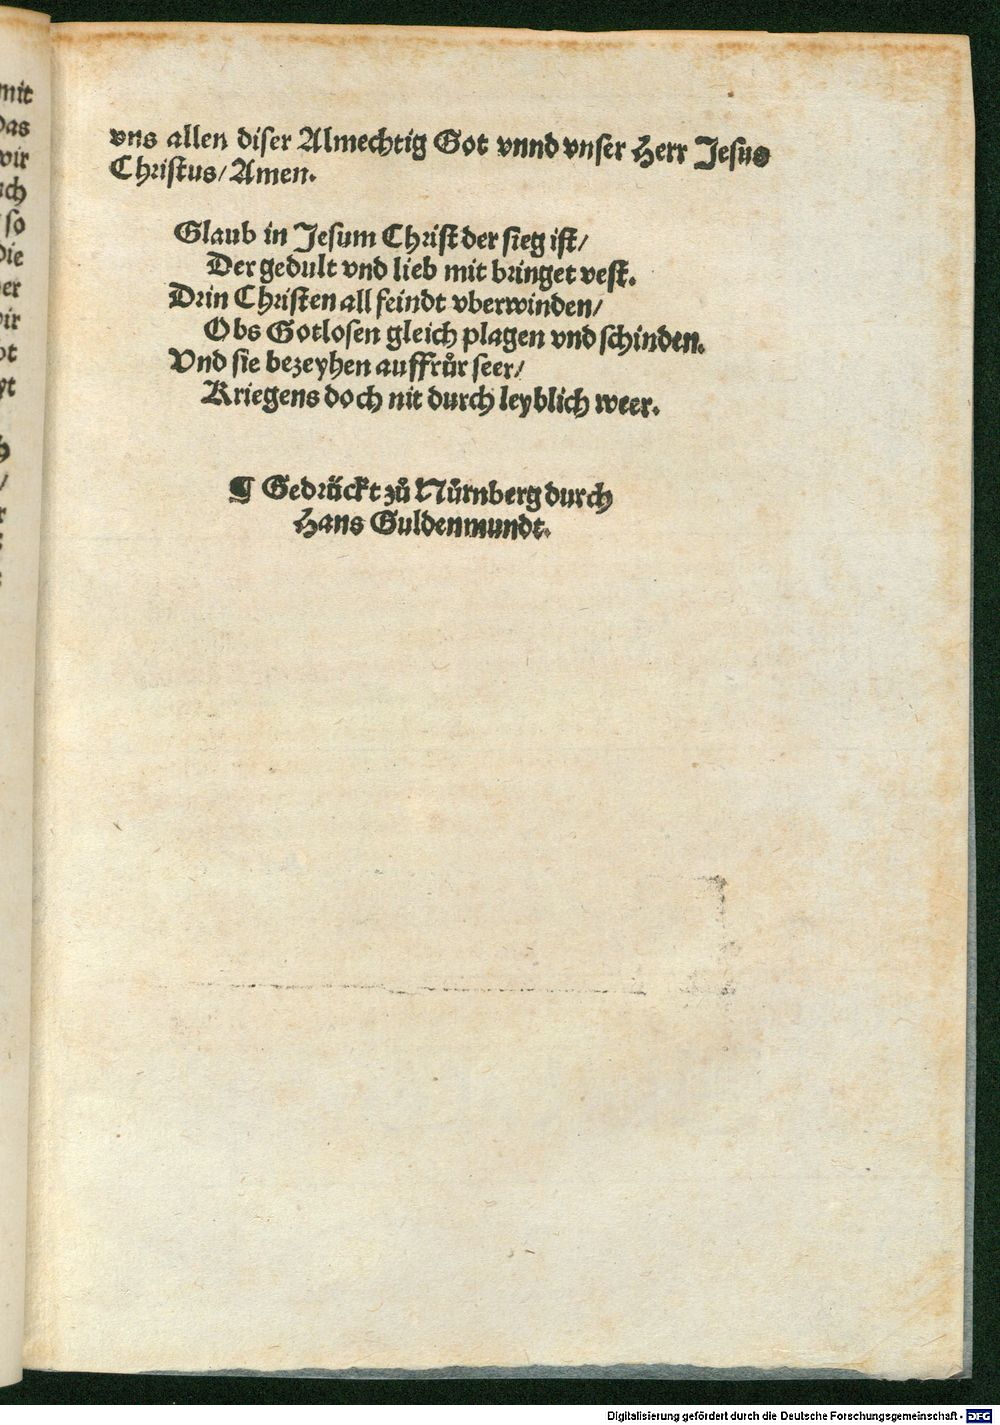 vns allen diser Almechtig Got vnnd vnser Herr Jesus
Christus/ Amen.
Glaub in Jesum Christ der sieg ist/
Der gedult vnd lieb mit bringet vest.
Drin Christen all feindt vberwinden/
Obs Gotlosen gleich plagen vnd schinden.
Vnd sie bezeyhen auffrůr seer/
Kriegens doch nit durch leyblich weer.
¶ Gedrückt zů Nůrnberg durch
Hans Guldenmundt.
mit
das
wir
ach
so
die
er
wir
ot
yt
Digitalisierung gefördert durch die Deutsche Forschungsgemeinschaft - DFG